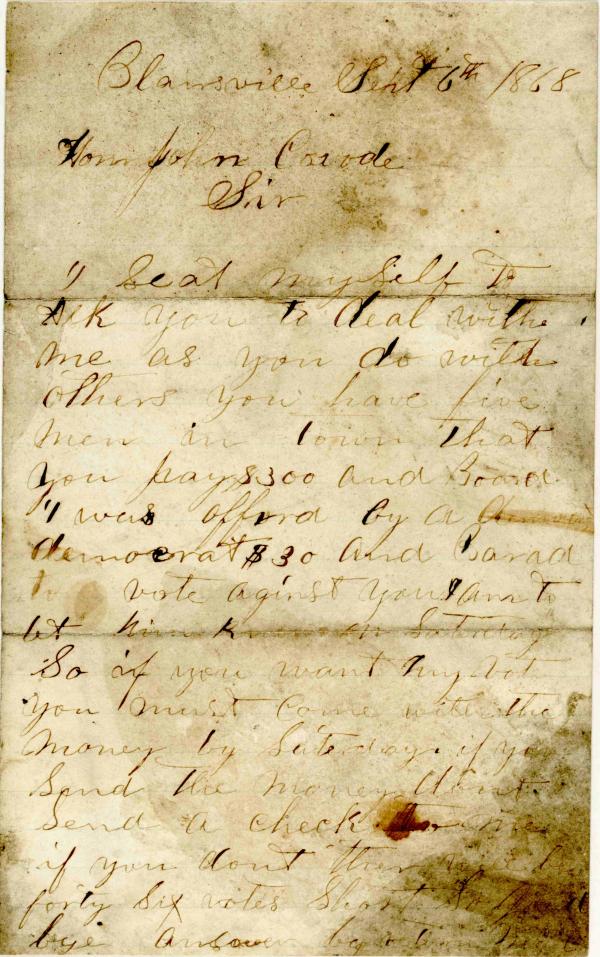 Blairsville Sept 6th 1868
Hon John Covode
Sir
I Seat myself to
ask you to deal withe
me as you do with
others you have five
men in town that
you pay $300 and Board
I was offerd by a
democrat $30 and Barad
to vote aginst you I am to
let him know on Saterday
So if you want my vot
you must Come with the
money by Saterday if you
Send the money dont
Send a check to me
if you dont then
forty Six votes Short So good
bye answer by